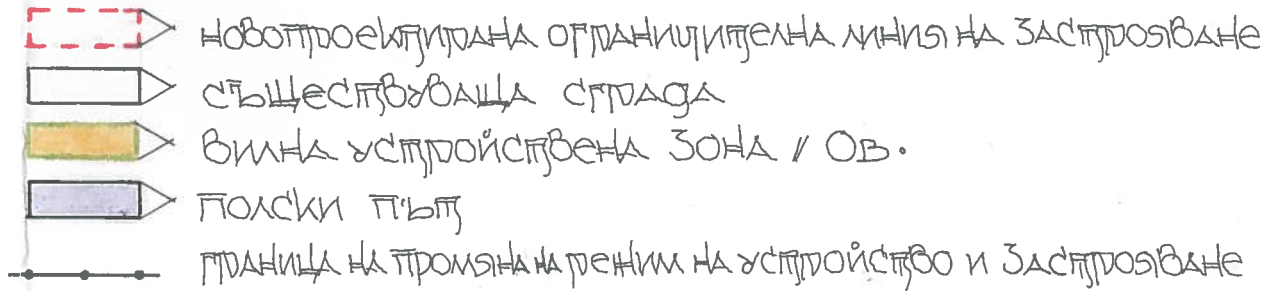 НОВОПРОЕКТИРАНА ОГРАНИЧИТЕЛНА ЛИНИЯ НА ЗАСТРОЯВАНЕ
СЪЩЕСТВУВАЩА СГРАДА
ВИЛНА УСТРОЙСТВЕНА ЗОНА / ОВ.
ПОЛСКИ ПЪТ
ГРАНИЦА НА ПРОМЯНА НА РЕЖИМ НА УСТРОЙСТВО И ЗАСТРОЯВАНЕ